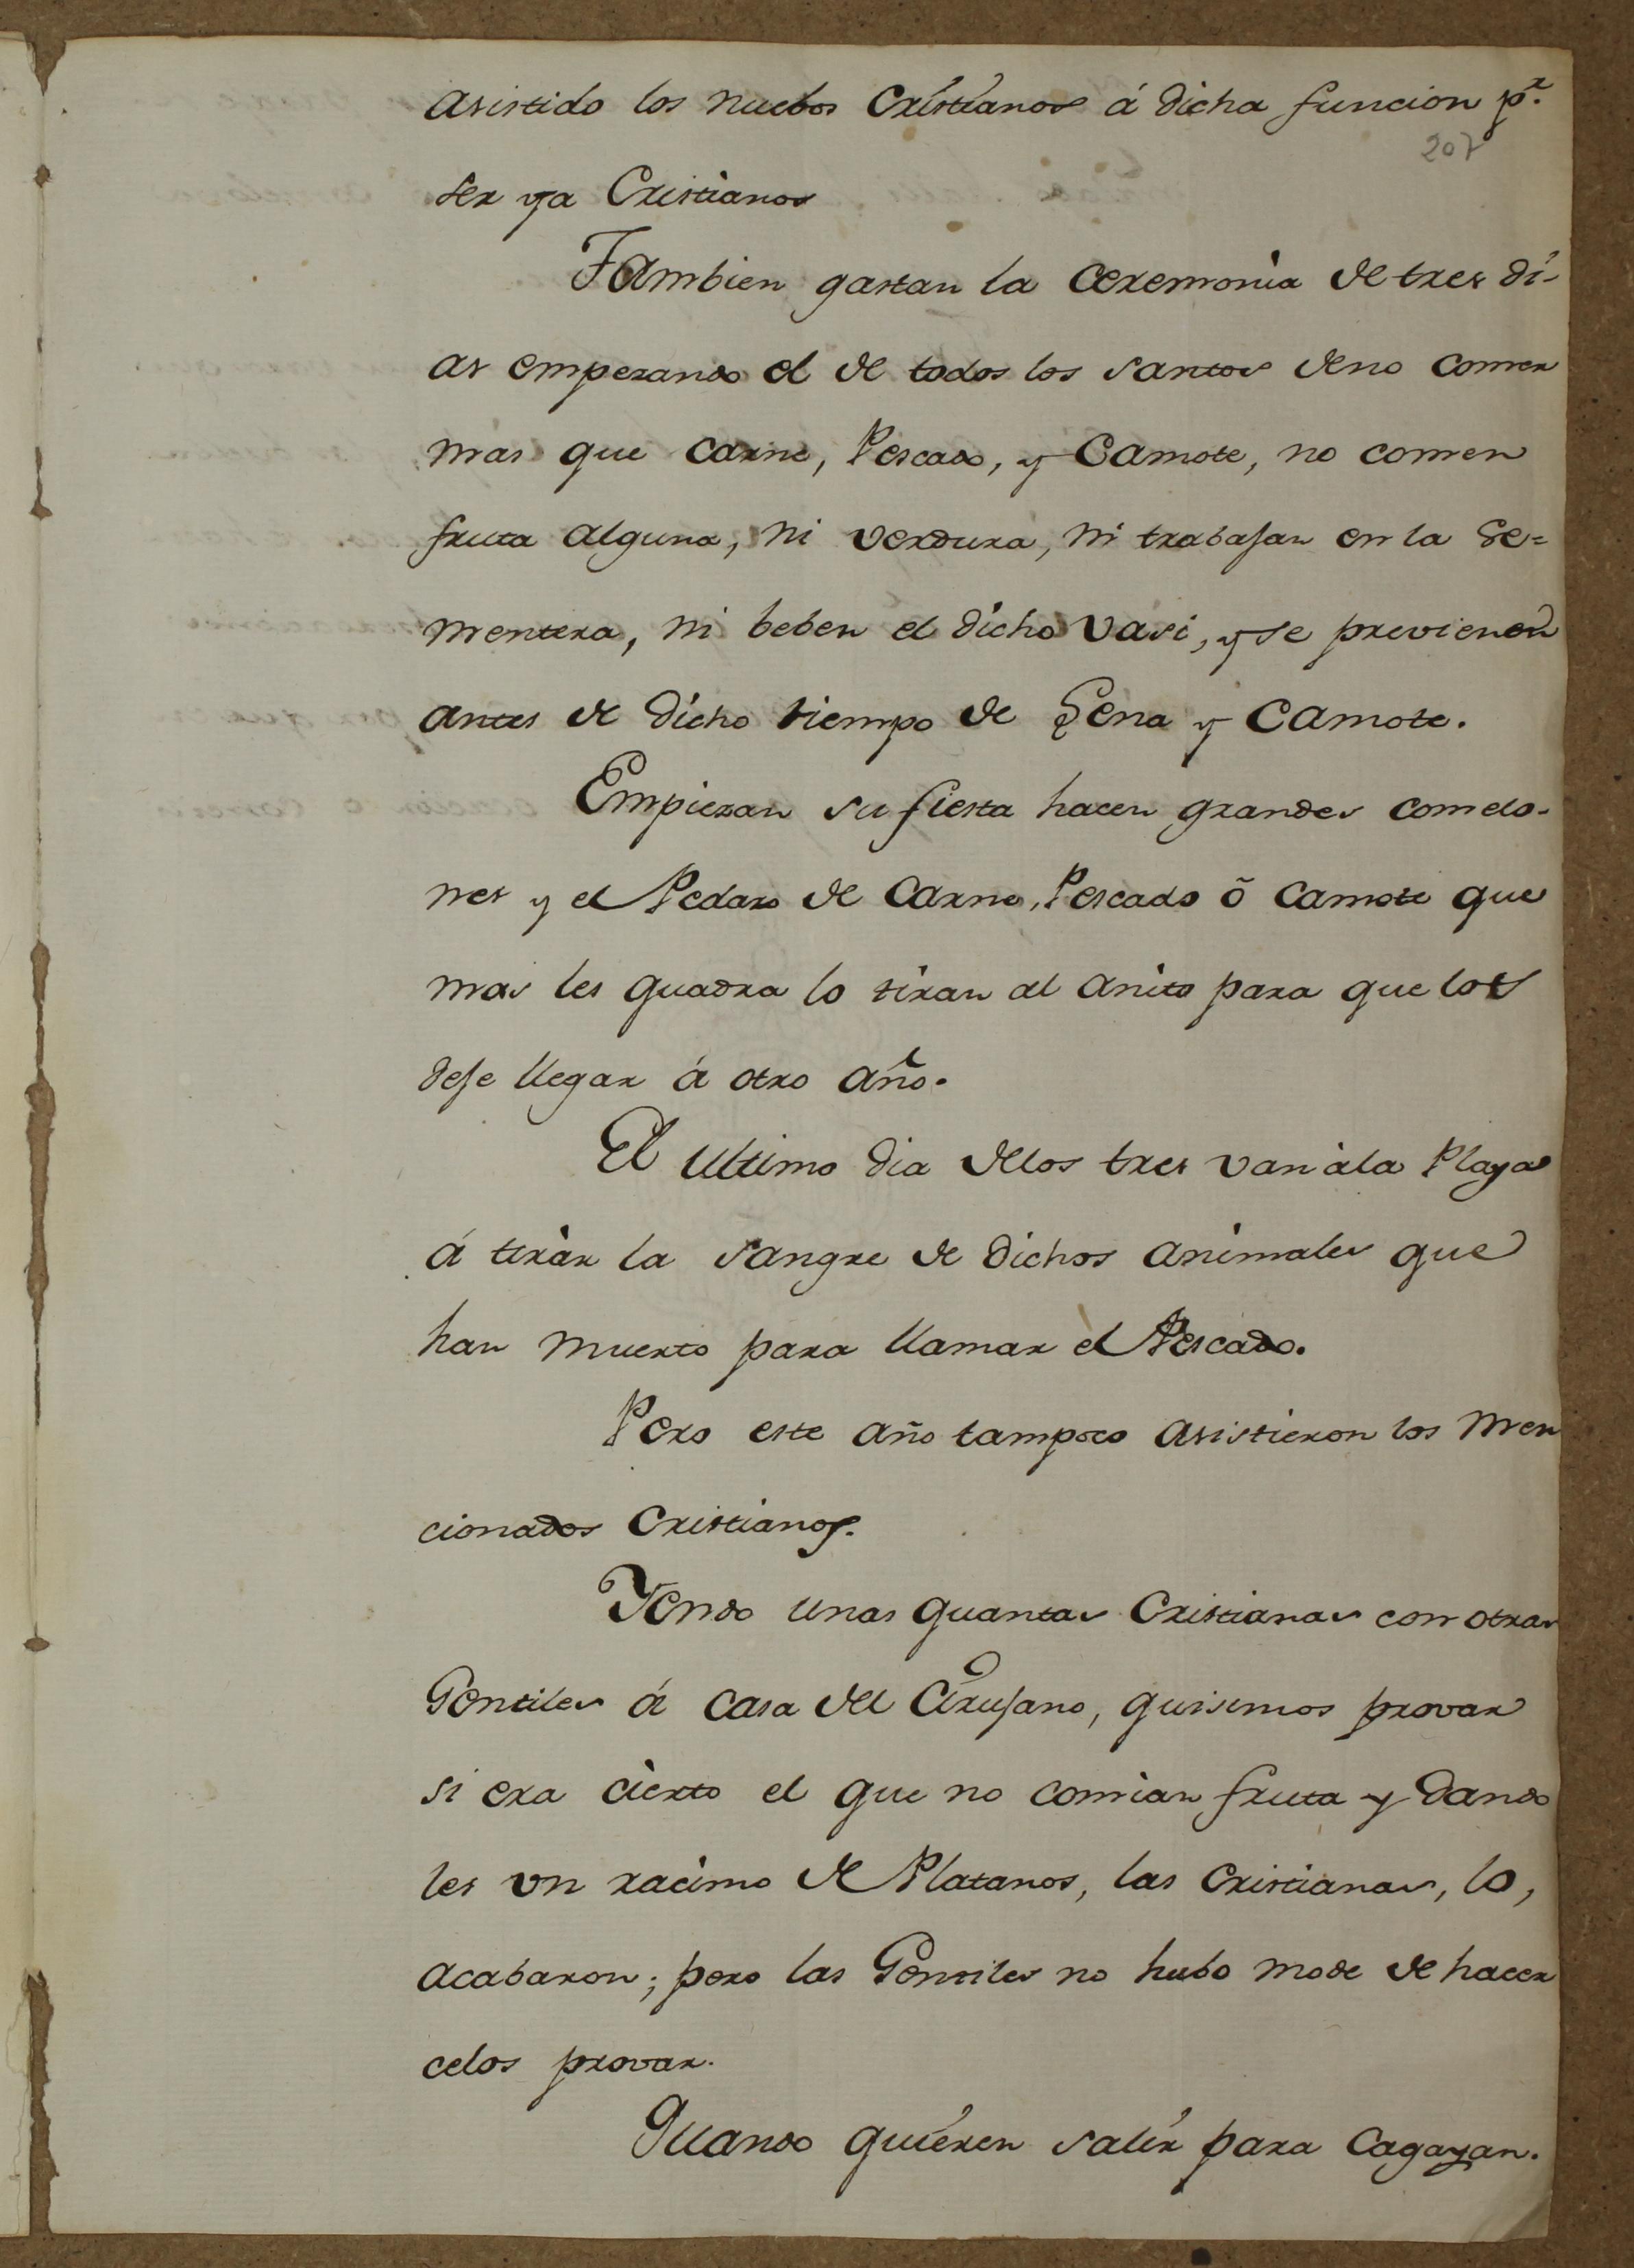 asistido los nuebos Cristianos á dicha funcion p.r
207
ser ya Cristianos
Tambien gastan la ceremonia de tres di-
as empezando el de todos los santos deno comer
mas que carne, Pescado, y Camote, no comen
fruta alguna, ni verdura, ni trabajan en la Se=
mentera, ni beben el dicho vasi, y se previenen
antes de dicho tiempo de Leña y Camote.
Empiezan su fiesta hacen grandes comelo-
nes y el Pedazo de Carne, Pescado ó camote que
mas les quadra lo tiran al anito para que los
deje llegar á otro año.
El ultimo dia delos tres van ála Playa
á tirár la sangre de dichos animales que
han muerto para llamar el Pescado.
Pero este año tampoco asistieron los men
cionados Cristianos.
Yendo unas quantas Cristianas con otras
Gentiles á casa del Cirujano, quisimos provar
si era cierto el que no comian fruta y dando
les un racimo de Platanos, las cristianas, lo,
acabaron; pero las Gentiles no hubo mode de hacer
celos provar.
Quando quiéren salir para Cagayan.